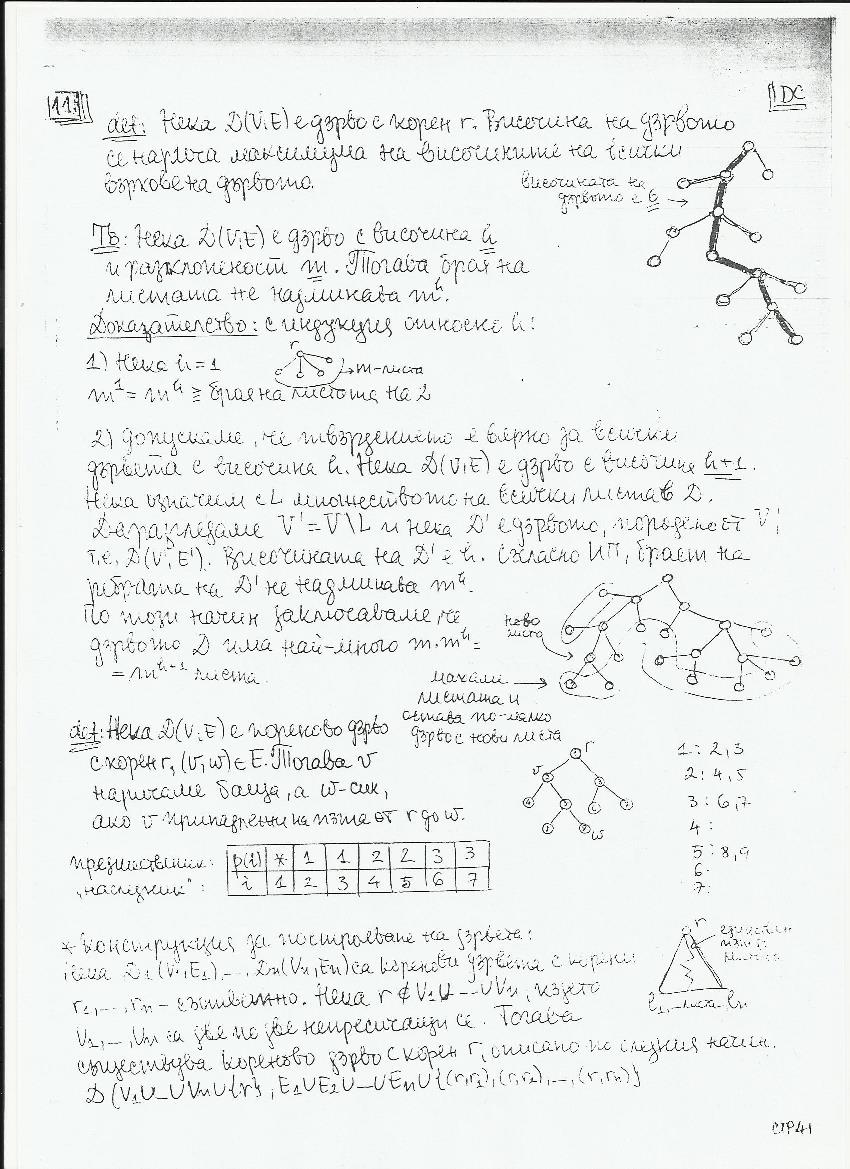 11.
DC
def: Нека D(V,E) е дърво с корен r. Височина на дървото
се нарича максимума на височините на всички
върхове на дървото.
височината на
дървото е 6
Тв: Нека D(V,E) е дърво с височина h
и разклоненост m. Тогава броя на
листата не надминава m^h.
Доказателство: с индукция относно h:
1) Нека h=1
r
m-листа
m^1 = m^h ≥ броя на листата на D
2) Допускаме, че твърдението е вярно за всички
дървета с височина h. Нека D(V,E) е дърво с височина h+1.
Нека означим с L множеството на всички листа в D.
Да разгледаме V'=V\L и нека D' е дървото, породено от V',
т.е. D(V',E'). Височината на D' е h. Съгласно ИП, броят на
на D' не надминава m^h.
По този начин заключаваме, че
дървото D има най-много m.m^h =
= m^{h+1} листа.
ново
листо
махаме
листата и
остава по-малко
дърво с нови листа
def: Нека D(V,E) е кореново дърво
с корен r, (v,w)∈E. Тогава v
наричаме баща, а w-син,
ако v принадлежи на пътя от r до w.
r
v
w
1: 2,3
2: 4,5
3: 6,7
4:
5: 8,9
6:
7:
предшественик: p(i) * 1 1 2 2 3 3
"наследник": i 1 2 3 4 5 6 7
* Конструкция за построяване на дървета:
Нека D1(V1,E1),..., Dn(Vn,En) са коренови дървета с корени
r1,...,rn - съответно. Нека r∉V1∪...∪Vn, където
V1,...,Vn са две по две непресичащи се. Тогава
съществува кореново дърво с корен r, описано по следния начин.
D(V1∪...∪Vn∪{r}, E1∪E2∪...∪En∪{(r,r1),(r,r2),...,(r,rn)}
r
единствен
път до
l1,...листа ln
СТР41